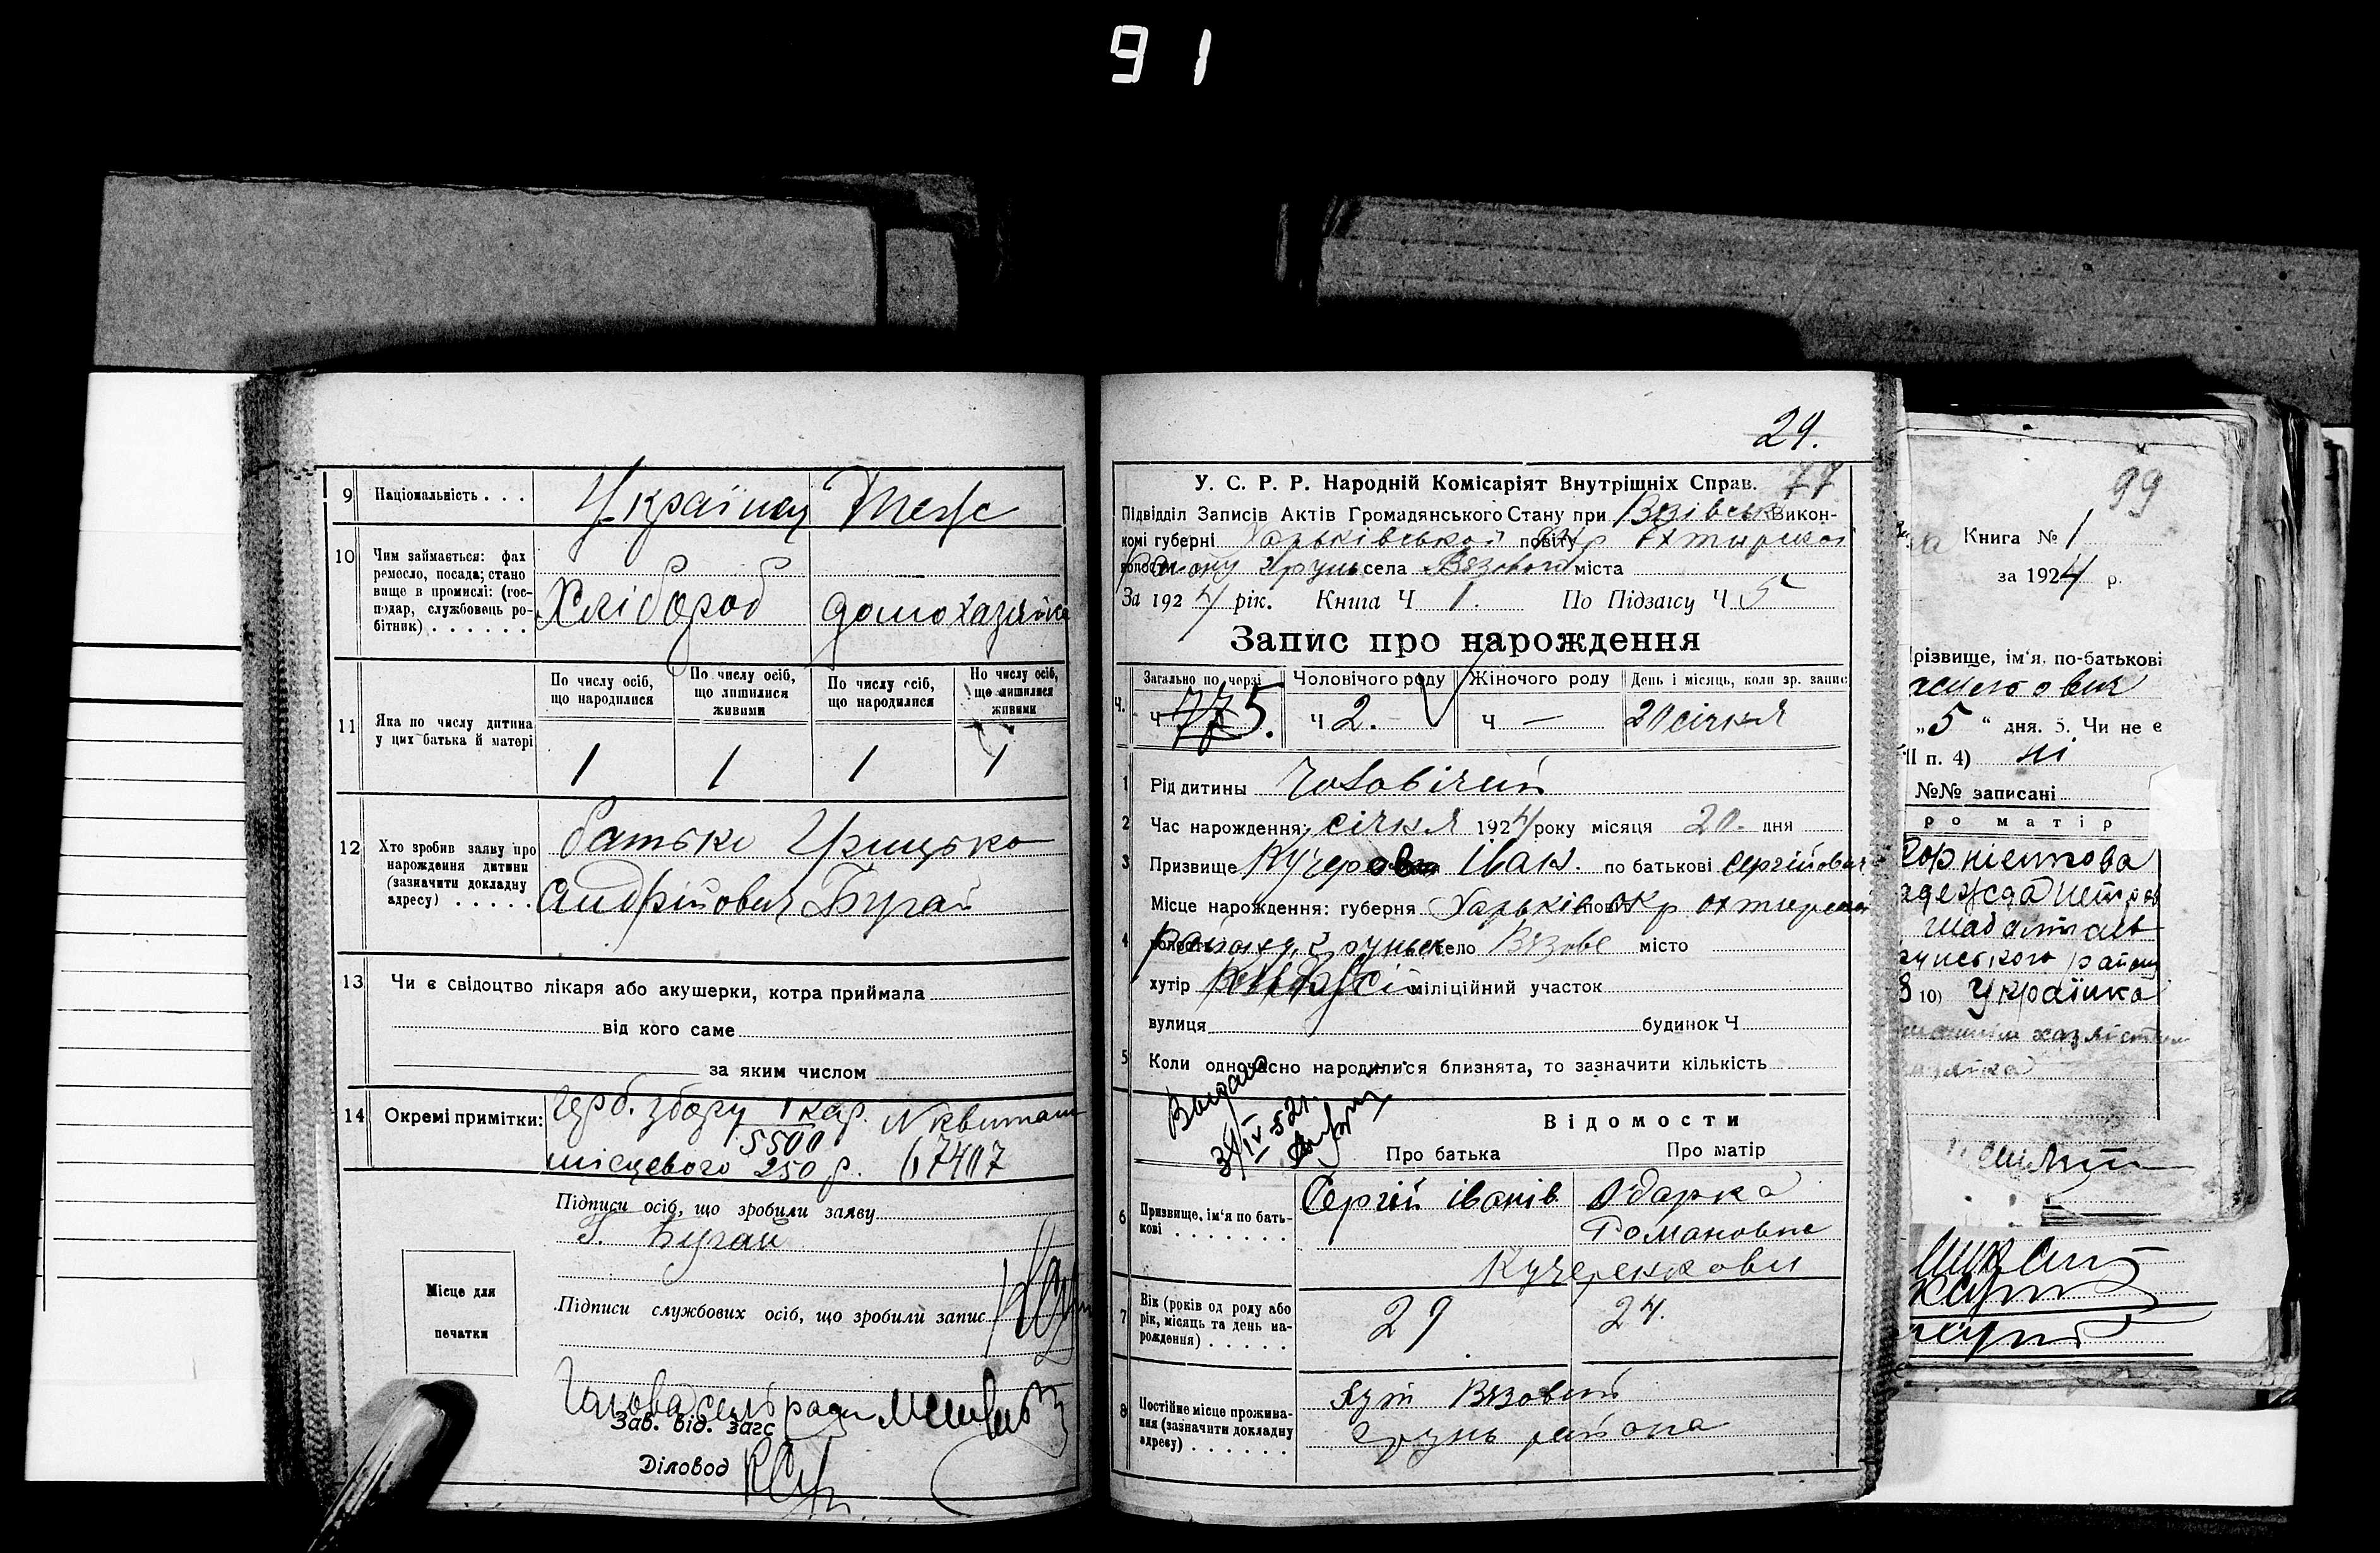 91
9 Національність . . . Українец Теж
10 Чим займається: фах
ремесло, посада; стано
вище в промислі: (гос-
подар, службовець ро-
бітник) . . . . . .
Хлібороб домохазяйка
11 Яка по числу дитина
у цих батька й матері
По числу осіб,
що народилися
По числу осіб,
що лишилися
живими
По числу осіб,
що народилися
Но числу осіб,
що лишилися
живими
1 1 1 1
12 Хто зробив заяву про
нарождення дитини
(зазначити докладну
адресу) . . . . .
батько Грицько
Андрійович Бугай
13 Чи є свідоцтво лікаря або акушерки, котра приймала
від кого саме
за яким числом
14 Окремі примітки:
герб. збору 1 кар. N квитан
5500
місцевого 250 р. 67407
Підписи осіб, що зробили заяву
Г. Бугай
Місце для
печатки
Підписи службових осіб, що зробили запис
Голова сельради
Зав. від. загс
Діловод
29.
77
У. С. Р. Р. Народній Комісаріят Внутрішніх Справ.
Підвідділ Записів Актів Громадянського Стану при Вязівськ Викон-
комі губерні Харьківської повіту окр Охтирской
волости району Грунь села Вязового міста
За 1924 рік. Книга Ч 1. По Підзагсу Ч 5
Запис про нарождення
Ч. Загально по черзі Чоловічого роду Жіночого роду День і місяць, коли зр. запис
Ч 77 5. Ч 2. Ч — 20 січня
1 Рід дитини Чоловічий
2 Час нарождення: січня 1924 року місяця 20. дня
3 Призвище Кучеров Іван. по батькові Сергійович
Місце нарождення: губерня Харьків повіт окр охтирской
4 волость району Груньск село Вязове місто
хутір міліційний участок
вулиця будинок Ч
5 Коли одночасно народилися близнята, то зазначити кількість
Выдано
3/IV-52г.
Відомости
Про батька Про матір
6 Призвище, ім'я по бать-
кові . . . . . . .
Сергій іванів Одарка
Романовне
Кучеренкови
7 Вік (років од роду або
рік, місяць та день на-
рождення) . . . . .
29 24.
8 Постійне місце прожива-
ння (зазначити докладну
адресу) . . . . . .
Хут Вязовий
Грунь района
99
Книга № 1
за 1924 р.
різвище, ім'я, по-батькові
„5“ дня. 5. Чи не є
ІІ п. 4) ні
№№ записані
ро матір
Корнієнкова
10) Українка